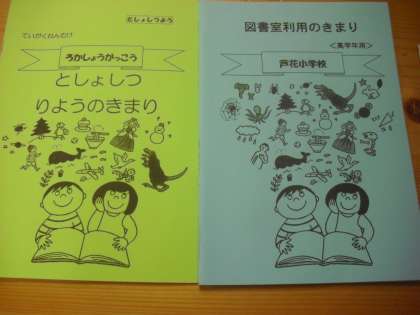 としょしつよう
ていがくねんむけ
ろかしょうがっこう
としょしつ
りようのきまり
図書室利用のきまり
<高学年用>
芦花小学校